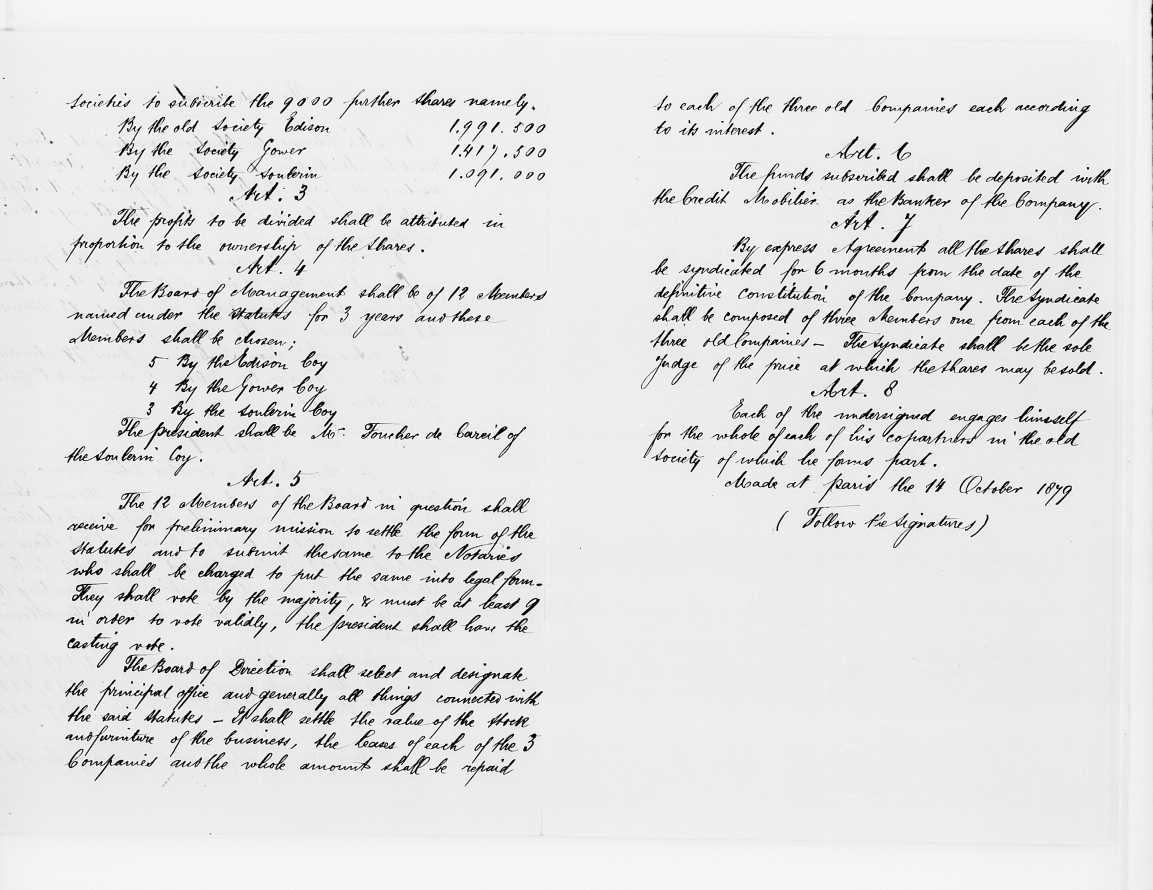 societies to subscribe the 9000 further shares namely.
By the old Society Edison 1.991.500
By the Society Gower 1.417.500
By the Society Soulerin 1.091.000
Art. 3
The profits to be divided shall be attributed in
proportion to the ownership of the shares.
Art. 4
The Board of Management shall be of 12 Members
named under the statutes for 3 years and these
Members shall be chosen;
5 By the Edison Coy
4 By the Gower Coy
3 By the Soulerin Coy
The president shall be Mr. Foucher de Careil of
the Soulerin Coy.
Art. 5
The 12 Members of the Board in question shall
receive for preliminary mission to settle the form of the
statutes and to submit the same to the Notaries
who shall be charged to put the same into legal form.
They shall vote by the majority, & must be at least 9
in order to vote validly, the president shall have the
casting vote.
The Board of Direction shall select and designate
the principal office and generally all things connected with
the said statutes – It shall settle the value of the stock
and furniture of the business, the leases of each of the 3
Companies and the whole amount shall be repaid
to each of the three old Companies each according
to its interest.
Art. 6
The funds subscribed shall be deposited with
the Credit Mobilier as the Banker of the Company.
Art. 7
By express Agreement all the shares shall
be syndicated for 6 months from the date of the
definitive constitution of the Company. The Syndicate
shall be composed of three Members one from each of the
three old Companies – The Syndicate shall be the sole
Judge of the price at which the shares may be sold.
Art. 8
Each of the undersigned engages himself
for the whole of each of his copartners in the old
Society of which he forms part.
Made at Paris the 14 October 1879
(Follow the Signatures)